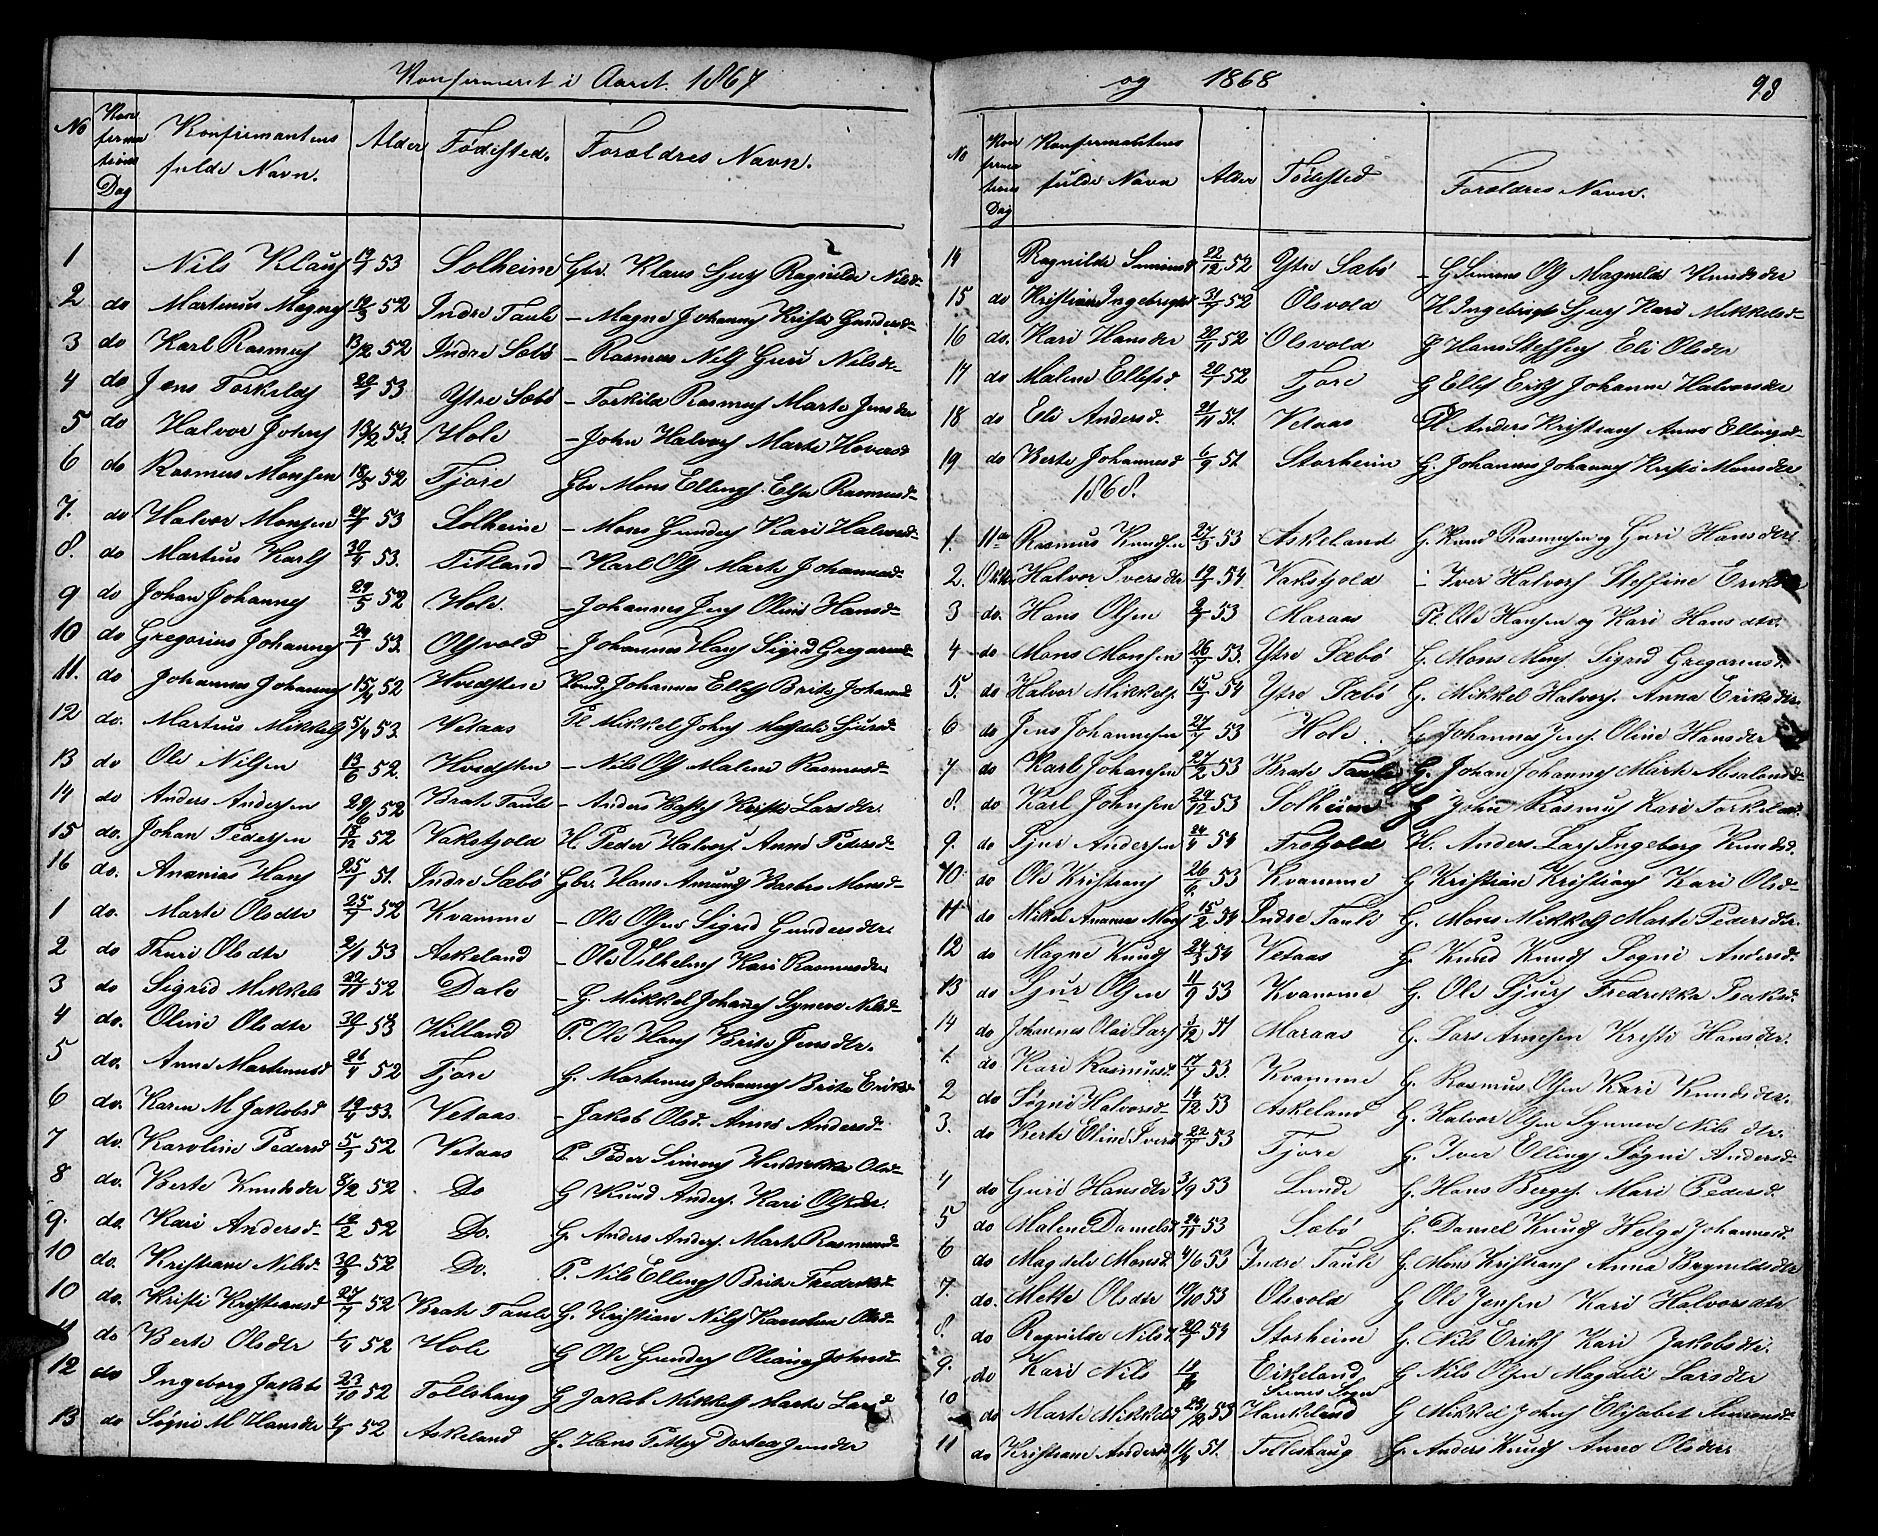 Konfirmeret i Aaret 1867
No Konfirmations Dag Konfirmantens fulde Navn. Alder Fødested. Forældres Navn.
1 Nils Klaus 19/7 53 Solheim Gbr. Klaus Sjurs Ragnilde Nilsd
2 do Martinus Magnes 52 Indre Taule – Magne Johannes Kristi Gundersd
3 do Karl Rasmus 13/12 52 Indre Sæbø – Rasmus Nils Guri Nilsd
4 do Jens Torkilds 53 Ytre Sæbø – Torkild Rasmus Marte Jensdr
5 do Halvor Johns 13/2 53. Hole – John Halvors Marte
6 do Rasmus Monsen 18/5 52 Tjore Gbr Mons Ellings. Else Rasmusd
7. do Halvor Monsen 27/7 53 Solheim – Mons Gunders Kari Halvorsd
8. do Martius Karls 30/4 53. Titland – Karl Ols Marte Johannesd
9 do Johan Johannes 29/5 52 Hole. – Johannes Jens Oline Hansd
10 do Gregorius Johannes 29/1 53. Olsvold – Johannes Hans Sigrid Gregoriusd
11. do Johannes Johannes 15/4 52 Hvidsten Johannes Ellefs Brite Johannesd
12 do. Martius Mikkels 5/4 53. Vetaas Pl Mikkel Johns Magdele Sjursd
13 do Ole Nilsen 13/6 52. Hvidsten – Nils Ols Malene Rasmusd
14 do Anders Andersen 29/6 52 Brate Taule – Anders Kristi Larsdr.
15 do. Johan Pedersen 52 Vakstjold H. Peder Halvors. Anne Pedersd
16 do. Ananias Hans 25/7 51. Indre Sæbø Gbr. Hans Amunds Barbro Monsd
1 do. Marte Olsdtr 25/7 52 Kvamme – Ole Olsen Sigrid Gundersdtr.
2 do Thuri Olsdtr 2/1 53 Askeland – Ole Vilhelms Kari Rasmusdtr
3 do Sigrid Mikkels 22/11 52 Dale – G. Mikkel Johannes Synneve Nilsd
4 do. Oline Olsdtr 30/7 53 Hilland P. Ole Hans Brite Jensdtr.
5 do. Anne Martinusd 21/4 52 Tjore G. Martinus Johannes Brita Eriksd
6 do. Karen M Jakobsd 19/4 53. Vetaas – Jakob Olsd. Anne Andersd.
7 do. Karoline Pedersd 5/7 52 Vetaas P. Peder Simons Hendrikke Olsd
8 do. Berte Knutsdtr 8/12 52 Do G Knud Anders. Kari Olsdtr.
9. do. Kari Andersd 12/2 52 Do. G. Anders Anders. Marte Rasmusd
10 do. Kristiane Nilsd 30/9 52 Do. P. Nils Ellings Brite Frederiksd
10 do. Kristi Kristiansd 27/7 52 Brate Taule G. Kristian Nils Karoline Olsd
11 do Berte Olsdtr 1/1 52 Hole G Ole Gunders Oliane Johnsd
12 do Ingeborg Jakobs 23/10 52 Tolleshaug G Jakob Mikkels Marte Larsd
13 do Søgni M Hansdtr 4/7 52 Askeland G. Hans Petters Dortea Jensdtr
og 1868 98
No Konfirmations Dag Konfirmantens fulde Navn Alder Fødested Forældres Navn.
14 Ragnilde Simonsd 22/12 52 Ytre Sæbø – G Simons Ols Magnilde Knudsdtr
15 do Kristiane Ingebrigtsd 31/7 52 Olsvold H Ingebrigt Sjurs Kari Mikkelsd
16 do. Kari Hansdtr 20/11 52 Olsvold G Hans Steffens Eli Olsdtr
17 do Malene Ellefsd. 20/1 52 Tjore G Ellef Eriks Johanne Halvorsdtr
18 do Eli Andersd. 21/11 51. Vetaas Pl Anders Kristians Anne Ellingsd
19 do Berte Johannesd 6/9 51 Storheim G. Johannes Johannes Kristi Monsdtr
1868.
1. 11te Rasmus Knudsen 27/3 53 Askeland G. Knud Rasmussen og Guri Hansdtr
2. Oktbr Halvor Iversdtr 19/7 54 Vakstjold – Iver Halvors Steffine Eriksd
3 do. Hans Olsen 2/7 53 Maraas Pl. Ole Hansen og Kari Hansdtr.
4 do Mons Monsen 26/7 53. Ytre Sæbø G. Mons Mons. Sigrid Gregoriusd.
5. do Halvor Mikkels. 15/3 54 Ytre Sæbø G. Mikkel Halvors. Anna Eriksdtr.
6 do Jens Johannesen 27/7 53 Hole G Johannes Jens. Oline Hansdtr
7 do Karl Johansen 27/2 53 Brate Taule G. Johan Johannes Marte Absalonsd
8. do Karl Johnsen 29/12 53 Solheim G John Rasmus Kari Torkelsd.
9. do Sjur Andersen 24/4 54 Frotjold H. Anders Lars Ingeborg Knudsd.
10 do Ole Kristians 26/6. 53 Kvamme G Kristian Kristians Kari Olsd
11 do Mikkel Ananias Mons 15/2 54 Indre Taule G. Mons Mikkels Marte Pedersdtr.
12 do Magne Knuds 24/3 54 Vetaas G. Knud Knuds Søgni Andersd.
13 do Sjur Olsen 11/9 53 Kvamme G. Ole Sjurs Fredrikke Isaksd.
14 do Johannes Olai Lars 1/12 51 Maraas G. Lars Arnesen Kristi Hansdtr.
1. do Kari Rasmusd. 17/7 53. Kvamme G. Rasmus Olsen Kari Knudsdtr.
2 do Søgni Halvorsd 14/12 53 Askeland G. Halvor Olsen Synneve Nilsdtr.
3. do Berte Oline Iversd 22/7 53 Tjore G. Iver Ellings Søgni Andersd
4 do Guri Hansdtr 3/9 53 Lunde G. Hans Berges. Mari Pedersd.
5 do Malene Danielsd 24/11 53 Sæbø G. Daniel Knuds Helge Johannesd
6 do Magdele Monsd. 4/6 53 Indre Taule G. Mons Kristians Anna Bryniildsdtr
7. do. Mette Olsdtr 11/10 53 Olsvold G Ole Jensen Kari Halvorsdtr
8. do Ragnilde Nilsd. 20/7 54 Storheim G. Nils Eriks Kari Jakobsdtr.
9. do Kari Nils Eikeland Sognes Sogn G Nils Olsen Magdele Larsdtr
10 do Marte Mikkelsd 53 Haukeland G Mikkel Johns Elisabet Simonsd
11 do Kristiane Andersd 14/4 51. Tolleshaug G. Anders Knuds Anne Olsdtr